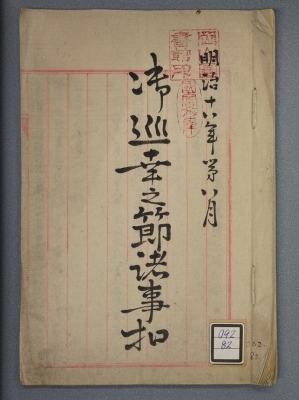 明治十八年第八月
御巡幸之節諸事扣
092
82
092
82